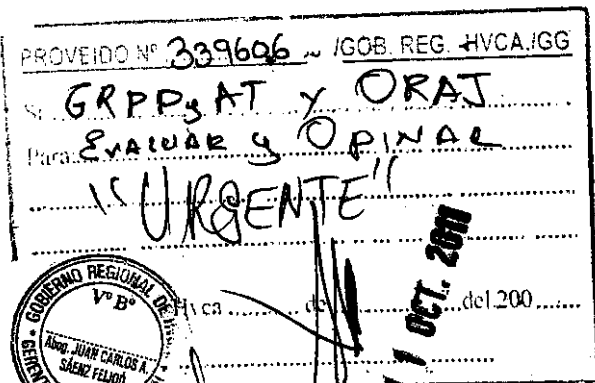 PROVEIDO Nº 339606 /GOB. REG. HVCA./GG
S. GRPPyAT y ORAJ
Para: EVALUAR y OPINAR
"URGENTE"
Hvca ........ de ........ del 200 .......
1 OCT. 2011
GOBIERNO REGIONAL DE
Vº Bº
Abog. JUAN CARLOS A.
SÁENZ FEIJOÓ